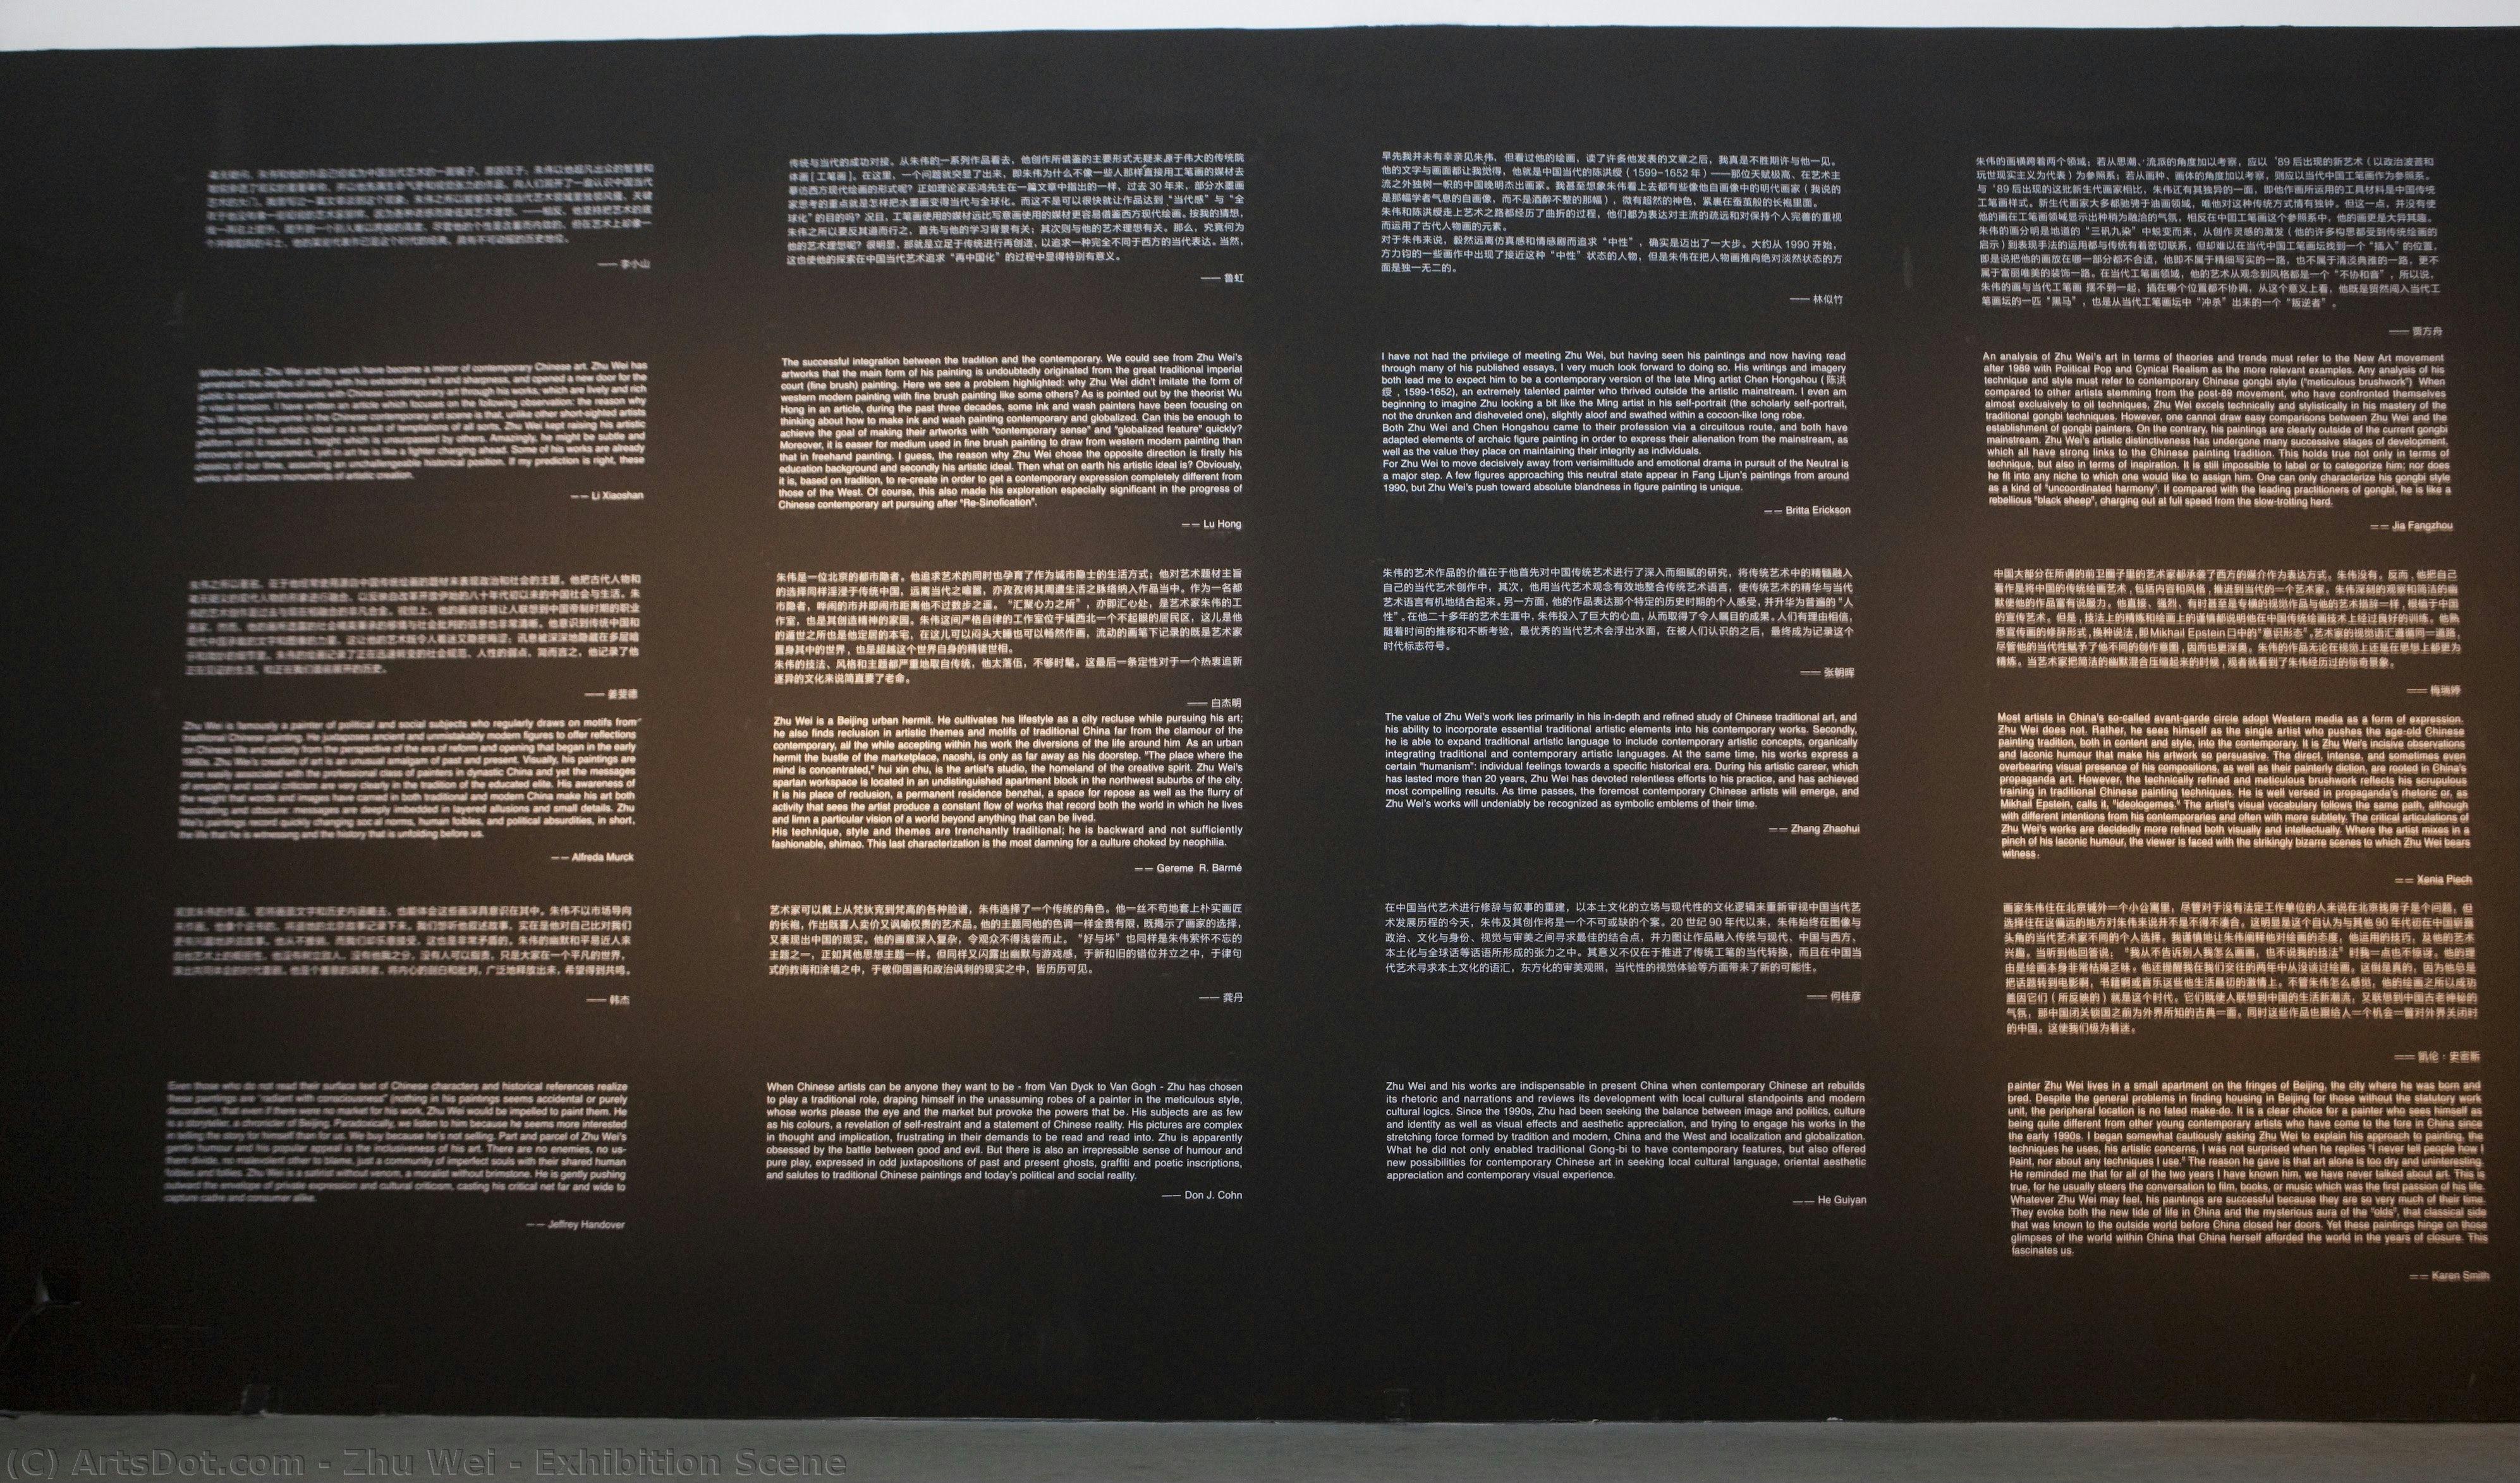 —— 李小山
Without doubt, Zhu Wei and his work have become a mirror of contemporary Chinese art. Zhu Wei has
penetrated the depths of reality with his extraordinary wit and sharpness, and opened a new door for the
public to acquaint themselves with Chinese contemporary art through his works, which are lively and rich
in visual tension. I have written an article centered on the following observation: the reason why
Zhu Wei reigns supreme in the Chinese contemporary art scene is that, unlike other short-sighted artists
who lower their artistic ideal as a result of temptations of all sorts, Zhu Wei kept raising his artistic
platform until it reached a height which is unsurpassed by others. Amazingly, he might be subtle and
introverted in temperament, yet in art he is like a fighter charging ahead. Some of his works are already
classics of our time, assuming an unchallengeable historical position. If my prediction is right, these
works shall become monuments of artistic creation.
—— Li Xiaoshan
—— 姜斐德
Zhu Wei is famously a painter of political and social subjects who regularly draws on motifs from
traditional Chinese painting. He juxtaposes ancient and unmistakably modern figures to offer reflections
on Chinese life and society from the perspective of the era of reform and opening that began in the early
1980s. Zhu Wei's creation of art is an unusual amalgam of past and present. Visually, his paintings are
more easily associated with the professional class of painters in dynastic China and yet the messages
of empathy and social criticism are very clearly in the tradition of the educated elite. His awareness of
the weight that words and images have carried in both traditional and modern China make his art both
fascinating and obscure: messages are deeply imbedded in layered allusions and small details. Zhu
Wei's paintings record quickly changing social norms, human foibles, and political absurdities, in short,
the life that he is witnessing and the history that is unfolding before us.
—— Alfreda Murck
—— 韩杰
Even those who do not read their surface text of Chinese characters and historical references realize
these paintings are "radiant with consciousness" (nothing in his paintings seems accidental or purely
decorative), that even if there were no market for his work, Zhu Wei would be impelled to paint them. He
is a storyteller, a chronicler of Beijing. Paradoxically, we listen to him because he seems more interested
in telling the story for himself than for us. We buy because he's not selling. Part and parcel of Zhu Wei's
gentle humour and his popular appeal is the inclusiveness of his art. There are no enemies, no us-
them divide, no malevolent other to blame, just a community of imperfect souls with their shared human
foibles and follies. Zhu Wei is a satirist without venom, a moralist without brimstone. He is gently pushing
outward the envelope of private expression and cultural criticism, casting his critical net far and wide to
capture cadre and consumer alike.
—— Jeffrey Handover
传统与当代的成功对接。从朱伟的一系列作品看去，他创作所借鉴的主要形式无疑来原于伟大的传统院
体画[工笔画]。在这里，一个问题就突显了出来，即朱伟为什么不像一些人那样直接用工笔画的媒材去
摹仿西方现代绘画的形式呢？正如理论家巫鸿先生在一篇文章中指出的一样，过去 30 年来，部分水墨画
家思考的重点就是怎样把水墨画变得当代与全球化。而这不是可以很快就让作品达到“当代感”与“全
球化”的目的吗？况且，工笔画使用的媒材远比写意画使用的媒材更容易借鉴西方现代绘画。按我的猜想，
朱伟之所以要反其道而行之，首先与他的学习背景有关；其次则与他的艺术理想有关。那么，究竟何为
他的艺术理想呢？很明显，那就是立足于传统进行再创造，以追求一种完全不同于西方的当代表达。当然，
这也使他的探索在中国当代艺术追求“再中国化”的过程中显得特别有意义。
—— 鲁虹
The successful integration between the tradition and the contemporary. We could see from Zhu Wei's
artworks that the main form of his painting is undoubtedly originated from the great traditional imperial
court (fine brush) painting. Here we see a problem highlighted: why Zhu Wei didn't imitate the form of
western modern painting with fine brush painting like some others? As is pointed out by the theorist Wu
Hong in an article, during the past three decades, some ink and wash painters have been focusing on
thinking about how to make ink and wash painting contemporary and globalized. Can this be enough to
achieve the goal of making their artworks with "contemporary sense" and "globalized feature" quickly?
Moreover, it is easier for medium used in fine brush painting to draw from western modern painting than
that in freehand painting. I guess, the reason why Zhu Wei chose the opposite direction is firstly his
education background and secondly his artistic ideal. Then what on earth his artistic ideal is? Obviously,
it is, based on tradition, to re-create in order to get a contemporary expression completely different from
those of the West. Of course, this also made his exploration especially significant in the progress of
Chinese contemporary art pursuing after "Re-Sinofication".
—— Lu Hong
朱伟是一位北京的都市隐者。他追求艺术的同时也孕育了作为城市隐士的生活方式；他对艺术题材主旨
的选择同样淫浸于传统中国，远离当代之喧嚣，亦孜孜将其周遭生活之脉络纳入作品当中。作为一名都
市隐者，哗闹的市井即闹市距离他不过数步之遥。“汇聚心力之所”，亦即汇心处，是艺术家朱伟的工
作室，也是其创造精神的家园。朱伟这间严格自律的工作室位于城西北一个不起眼的居民区，这儿是他
的遁世之所也是他定居的本宅，在这儿可以闷头大睡也可以畅然作画，流动的画笔下记录的既是艺术家
置身其中的世界，也是超越这个世界自身的精镂世相。
朱伟的技法、风格和主题都严重地取自传统，他太落伍，不够时髦。这最后一条定性对于一个热衷追新
逐异的文化来说简直要了老命。
—— 白杰明
Zhu Wei is a Beijing urban hermit. He cultivates his lifestyle as a city recluse while pursuing his art;
he also finds reclusion in artistic themes and motifs of traditional China far from the clamour of the
contemporary, all the while accepting within his work the diversions of the life around him. As an urban
hermit the bustle of the marketplace, naoshi, is only as far away as his doorstep. "The place where the
mind is concentrated," hui xin chu, is the artist's studio, the homeland of the creative spirit. Zhu Wei's
spartan workspace is located in an undistinguished apartment block in the northwest suburbs of the city.
It is his place of reclusion, a permanent residence benzhai, a space for repose as well as the flurry of
activity that sees the artist produce a constant flow of works that record both the world in which he lives
and limn a particular vision of a world beyond anything that can be lived.
His technique, style and themes are trenchantly traditional; he is backward and not sufficiently
fashionable, shimao. This last characterization is the most damning for a culture choked by neophilia.
—— Gereme R. Barmé
艺术家可以戴上从梵狄克到梵高的各种脸谱，朱伟选择了一个传统的角色。他一丝不苟地套上朴实画匠
的长袍，作出既喜人卖价又讽喻权贵的艺术品。他的主题同他的色调一样金贵有限，既揭示了画家的选择，
又表现出中国的现实。他的画意深入复杂，令观众不得浅尝而止。“好与坏”也同样是朱伟萦怀不忘的
主题之一，正如其他思想主题一样。但同样又闪露出幽默与游戏感，于新和旧的错位并立之中，于律句
式的教诲和涂墙之中，于敬仰国画和政治讽刺的现实之中，皆历历可见。
—— 龚丹
When Chinese artists can be anyone they want to be - from Van Dyck to Van Gogh - Zhu has chosen
to play a traditional role, draping himself in the unassuming robes of a painter in the meticulous style,
whose works please the eye and the market but provoke the powers that be. His subjects are as few
as his colours, a revelation of self-restraint and a statement of Chinese reality. His pictures are complex
in thought and implication, frustrating in their demands to be read and read into. Zhu is apparently
obsessed by the battle between good and evil. But there is also an irrepressible sense of humour and
pure play, expressed in odd juxtapositions of past and present ghosts, graffiti and poetic inscriptions,
and salutes to traditional Chinese paintings and today's political and social reality.
—— Don J. Cohn
早先我并未有幸亲见朱伟，但看过他的绘画，读了许多他发表的文章之后，我真是不胜期许与他一见。
他的文字与画面都让我觉得，他就是中国当代的陈洪绶（1599-1652 年）——那位天赋极高、在艺术主
流之外独树一帜的中国晚明杰出画家。我甚至想象朱伟看上去都有些像他自画像中的明代画家（我说的
是那幅学者气息的自画像，而不是酒醉不整的那幅），微有超然的神色，紧裹在蚕茧般的长袍里面。
朱伟和陈洪绶走上艺术之路都经历了曲折的过程，他们都为表达对主流的疏远和对保持个人完善的重视
而运用了古代人物画的元素。
对于朱伟来说，毅然远离仿真感和情感剧而追求“中性”，确实是迈出了一大步。大约从 1990 开始，
方力钧的一些画作中出现了接近这种“中性”状态的人物，但是朱伟在把人物画推向绝对淡然状态的方
面是独一无二的。
—— 林似竹
I have not had the privilege of meeting Zhu Wei, but having seen his paintings and now having read
through many of his published essays, I very much look forward to doing so. His writings and imagery
both lead me to expect him to be a contemporary version of the late Ming artist Chen Hongshou (陈洪
绶 , 1599-1652), an extremely talented painter who thrived outside the artistic mainstream. I even am
beginning to imagine Zhu looking a bit like the Ming artist in his self-portrait (the scholarly self-portrait,
not the drunken and disheveled one), slightly aloof and swathed within a cocoon-like long robe.
Both Zhu Wei and Chen Hongshou came to their profession via a circuitous route, and both have
adapted elements of archaic figure painting in order to express their alienation from the mainstream, as
well as the value they place on maintaining their integrity as individuals.
For Zhu Wei to move decisively away from verisimilitude and emotional drama in pursuit of the Neutral is
a major step. A few figures approaching this neutral state appear in Fang Lijun's paintings from around
1990, but Zhu Wei's push toward absolute blandness in figure painting is unique.
—— Britta Erickson
朱伟的艺术作品的价值在于他首先对中国传统艺术进行了深入而细腻的研究，将传统艺术中的精髓融入
自己的当代艺术创作中，其次，他用当代艺术观念有效地整合传统艺术语言，使传统艺术的精华与当代
艺术语言有机地结合起来。另一方面，他的作品表达那个特定的历史时期的个人感受，并升华为普遍的“人
性”。在他二十多年的艺术生涯中，朱伟投入了巨大的心血，从而取得了令人瞩目的成果。人们有理由相信，
随着时间的推移和不断考验，最优秀的当代艺术会浮出水面，在被人们认识的之后，最终成为记录这个
时代标志符号。
—— 张朝晖
The value of Zhu Wei's work lies primarily in his in-depth and refined study of Chinese traditional art, and
his ability to incorporate essential traditional artistic elements into his contemporary works. Secondly,
he is able to expand traditional artistic language to include contemporary artistic concepts, organically
integrating traditional and contemporary artistic languages. At the same time, his works express a
certain "humanism": individual feelings towards a specific historical era. During his artistic career, which
has lasted more than 20 years, Zhu Wei has devoted relentless efforts to his practice, and has achieved
most compelling results. As time passes, the foremost contemporary Chinese artists will emerge, and
Zhu Wei's works will undeniably be recognized as symbolic emblems of their time.
—— Zhang Zhaohui
在中国当代艺术进行修辞与叙事的重建，以本土文化的立场与现代性的文化逻辑来重新审视中国当代艺
术发展历程的今天，朱伟及其创作将是一个不可或缺的个案。20 世纪 90 年代以来，朱伟始终在图像与
政治、文化与身份、视觉与审美之间寻求最佳的结合点，并力图让作品融入传统与现代、中国与西方，
本土化与全球话等话语所形成的张力之中。其意义不仅在于推进了传统工笔的当代转换，而且在中国当
代艺术寻求本土文化的语汇，东方化的审美观照，当代性的视觉体验等方面带来了新的可能性。
—— 何桂彦
Zhu Wei and his works are indispensable in present China when contemporary Chinese art rebuilds
its rhetoric and narrations and reviews its development with local cultural standpoints and modern
cultural logics. Since the 1990s, Zhu had been seeking the balance between image and politics, culture
and identity as well as visual effects and aesthetic appreciation, and trying to engage his works in the
stretching force formed by tradition and modern, China and the West and localization and globalization.
What he did not only enabled traditional Gong-bi to have contemporary features, but also offered
new possibilities for contemporary Chinese art in seeking local cultural language, oriental aesthetic
appreciation and contemporary visual experience.
—— He Guiyan
朱伟的画横跨着两个领域；若从思潮、流派的角度加以考察，应以‘89 后出现的新艺术（以政治波普和
玩世现实主义为代表）为参照系；若从画种、画体的角度加以考察，则应以当代中国工笔画作为参照系。
与‘89 后出现的这批新生代画家相比，朱伟还有其独异的一面，即他作画所运用的工具材料是中国传统
工笔画样式。新生代画家大多都驰骋于油画领域，唯他对这种传统方式情有独钟。但这一点，并没有使
他的画在工笔画领域显示出种稍为融洽的气氛，相反在中国工笔画这个参照系中，他的画更是大异其趣。
朱伟的画分明是地道的“三矾九染”中蜕变而来，从创作灵感的激发（他的许多构思都受到传统绘画的
启示）到表现手法的运用都与传统有着密切联系，但却难以在当代中国工笔画坛找到一个“插入”的位置，
即是说把他的画放在哪一部分都不合适，他即不属于精细写实的一路，也不属于清淡典雅的一路，更不
属于富丽唯美的装饰一路。在当代工笔画领域，他的艺术从观念到风格都是一个“不协和音”，所以说，
朱伟的画与当代工笔画 摆不到一起，插在哪个位置都不协调，从这个意义上看，他既是贸然闯入当代工
笔画坛的一匹“黑马”，也是从当代工笔画坛中“冲杀”出来的一个“叛逆者”。
—— 贾方舟
An analysis of Zhu Wei's art in terms of theories and trends must refer to the New Art movement
after 1989 with Political Pop and Cynical Realism as the more relevant examples. Any analysis of his
technique and style must refer to contemporary Chinese gongbi style ("meticulous brushwork") When
compared to other artists stemming from the post-89 movement, who have confronted themselves
almost exclusively to oil techniques, Zhu Wei excels technically and stylistically in his mastery of the
traditional gongbi techniques. However, one cannot draw easy comparisons between Zhu Wei and the
establishment of gongbi painters. On the contrary, his paintings are clearly outside of the current gongbi
mainstream. Zhu Wei's artistic distinctiveness has undergone many successive stages of development,
which all have strong links to the Chinese painting tradition. This holds true not only in terms of
technique, but also in terms of inspiration. It is still impossible to label or to categorize him; nor does
he fit into any niche to which one would like to assign him. One can only characterize his gongbi style
as a kind of "uncoordinated harmony". If compared with the leading practitioners of gongbi, he is like a
rebellious "black sheep", charging out at full speed from the slow-trotting herd.
—— Jia Fangzhou
中国大部分在所谓的前卫圈子里的艺术家都承袭了西方的媒介作为表达方式。朱伟没有。反而，他把自己
看作是将中国的传统绘画艺术，包括内容和风格，推进到当代的一个艺术家。朱伟深刻的观察和简洁的幽
默使他的作品富有说服力。他直接、强烈、有时甚至是专横的视觉作品与他的艺术措辞一样，根植于中国
的宣传艺术。但是，技法上的精炼和绘画上的谨慎都说明他在中国传统绘画技术上经过良好的训练。他熟
悉宣传画的修辞形式，换种说法，即Mikhail Epstein口中的“意识形态”。艺术家的视觉语汇遵循同一道路，
尽管他的当代性赋予了他不同的创作意图，因而也更深奥。朱伟的作品无论在视觉上还是在思想上都更为
精炼。当艺术家把简洁的幽默混合压缩起来的时候，观者就看到了朱伟经历过的惊奇景象。
—— 梅瑞婷
Most artists in China's so-called avant-garde circle adopt Western media as a form of expression.
Zhu Wei does not. Rather, he sees himself as the single artist who pushes the age-old Chinese
painting tradition, both in content and style, into the contemporary. It is Zhu Wei's incisive observations
and laconic humour that make his artwork so persuasive. The direct, intense, and sometimes even
overbearing visual presence of his compositions, as well as their painterly diction, are rooted in China's
propaganda art. However, the technically refined and meticulous brushwork reflects his scrupulous
training in traditional Chinese painting techniques. He is well versed in propaganda's rhetoric or, as
Mikhail Epstein, calls it, "ideologemes." The artist's visual vocabulary follows the same path, although
with different intentions from his contemporaries and often with more subtlety. The critical articulations of
Zhu Wei's works are decidedly more refined both visually and intellectually. Where the artist mixes in a
pinch of his laconic humour, the viewer is faced with the strikingly bizarre scenes to which Zhu Wei bears
witness.
—— Xenia Piech
画家朱伟住在北京城外一个小公寓里，尽管对于没有法定工作单位的人来说在北京找房子是个问题，但
选择住在这偏远的地方对朱伟来说并不是不得不凑合。这明显是这个自认为与其他 90 年代初在中国崭露
头角的当代艺术家不同的个人选择。我谨慎地让朱伟阐释他对绘画的态度，他运用的技巧，及他的艺术
兴趣。当听到他回答说：“我从不告诉别人我怎么画画，也不说我的技法”时我一点也不惊讶。他的理
由是绘画本身非常枯燥乏味。他还提醒我在我们交往的两年中从没谈过绘画。这倒是真的，因为他总是
把话题转到电影啊，书籍啊或音乐这些他生活最初的激情上。不管朱伟怎么感觉，他的绘画之所以成功
盖因它们（所反映的）就是这个时代。它们既使人联想到中国的生活新潮流，又联想到中国古老神秘的
气氛，那中国闭关锁国之前为外界所知的古典一面。同时这些作品也跟给人一个机会一瞥对外界关闭时
的中国。这使我们极为着迷。
—— 凯伦·史密斯
painter Zhu Wei lives in a small apartment on the fringes of Beijing, the city where he was born and
bred. Despite the general problems in finding housing in Beijing for those without the statutory work
unit, the peripheral location is no fated make-do. It is a clear choice for a painter who sees himself as
being quite different from other young contemporary artists who have come to the fore in China since
the early 1990s. I began somewhat cautiously asking Zhu Wei to explain his approach to painting, the
techniques he uses, his artistic concerns. I was not surprised when he replies "I never tell people how I
Paint, nor about any techniques I use." The reason he gave is that art alone is too dry and uninteresting.
He reminded me that for all of the two years I have known him, we have never talked about art. This is
true, for he usually steers the conversation to film, books, or music which was the first passion of his life.
Whatever Zhu Wei may feel, his paintings are successful because they are so very much of their time.
They evoke both the new tide of life in China and the mysterious aura of the "olds", that classical side
that was known to the outside world before China closed her doors. Yet these paintings hinge on those
glimpses of the world within China that China herself afforded the world in the years of closure. This
fascinates us.
—— Karen Smith
(C) ArtsDot.com - Zhu Wei - Exhibition Scene